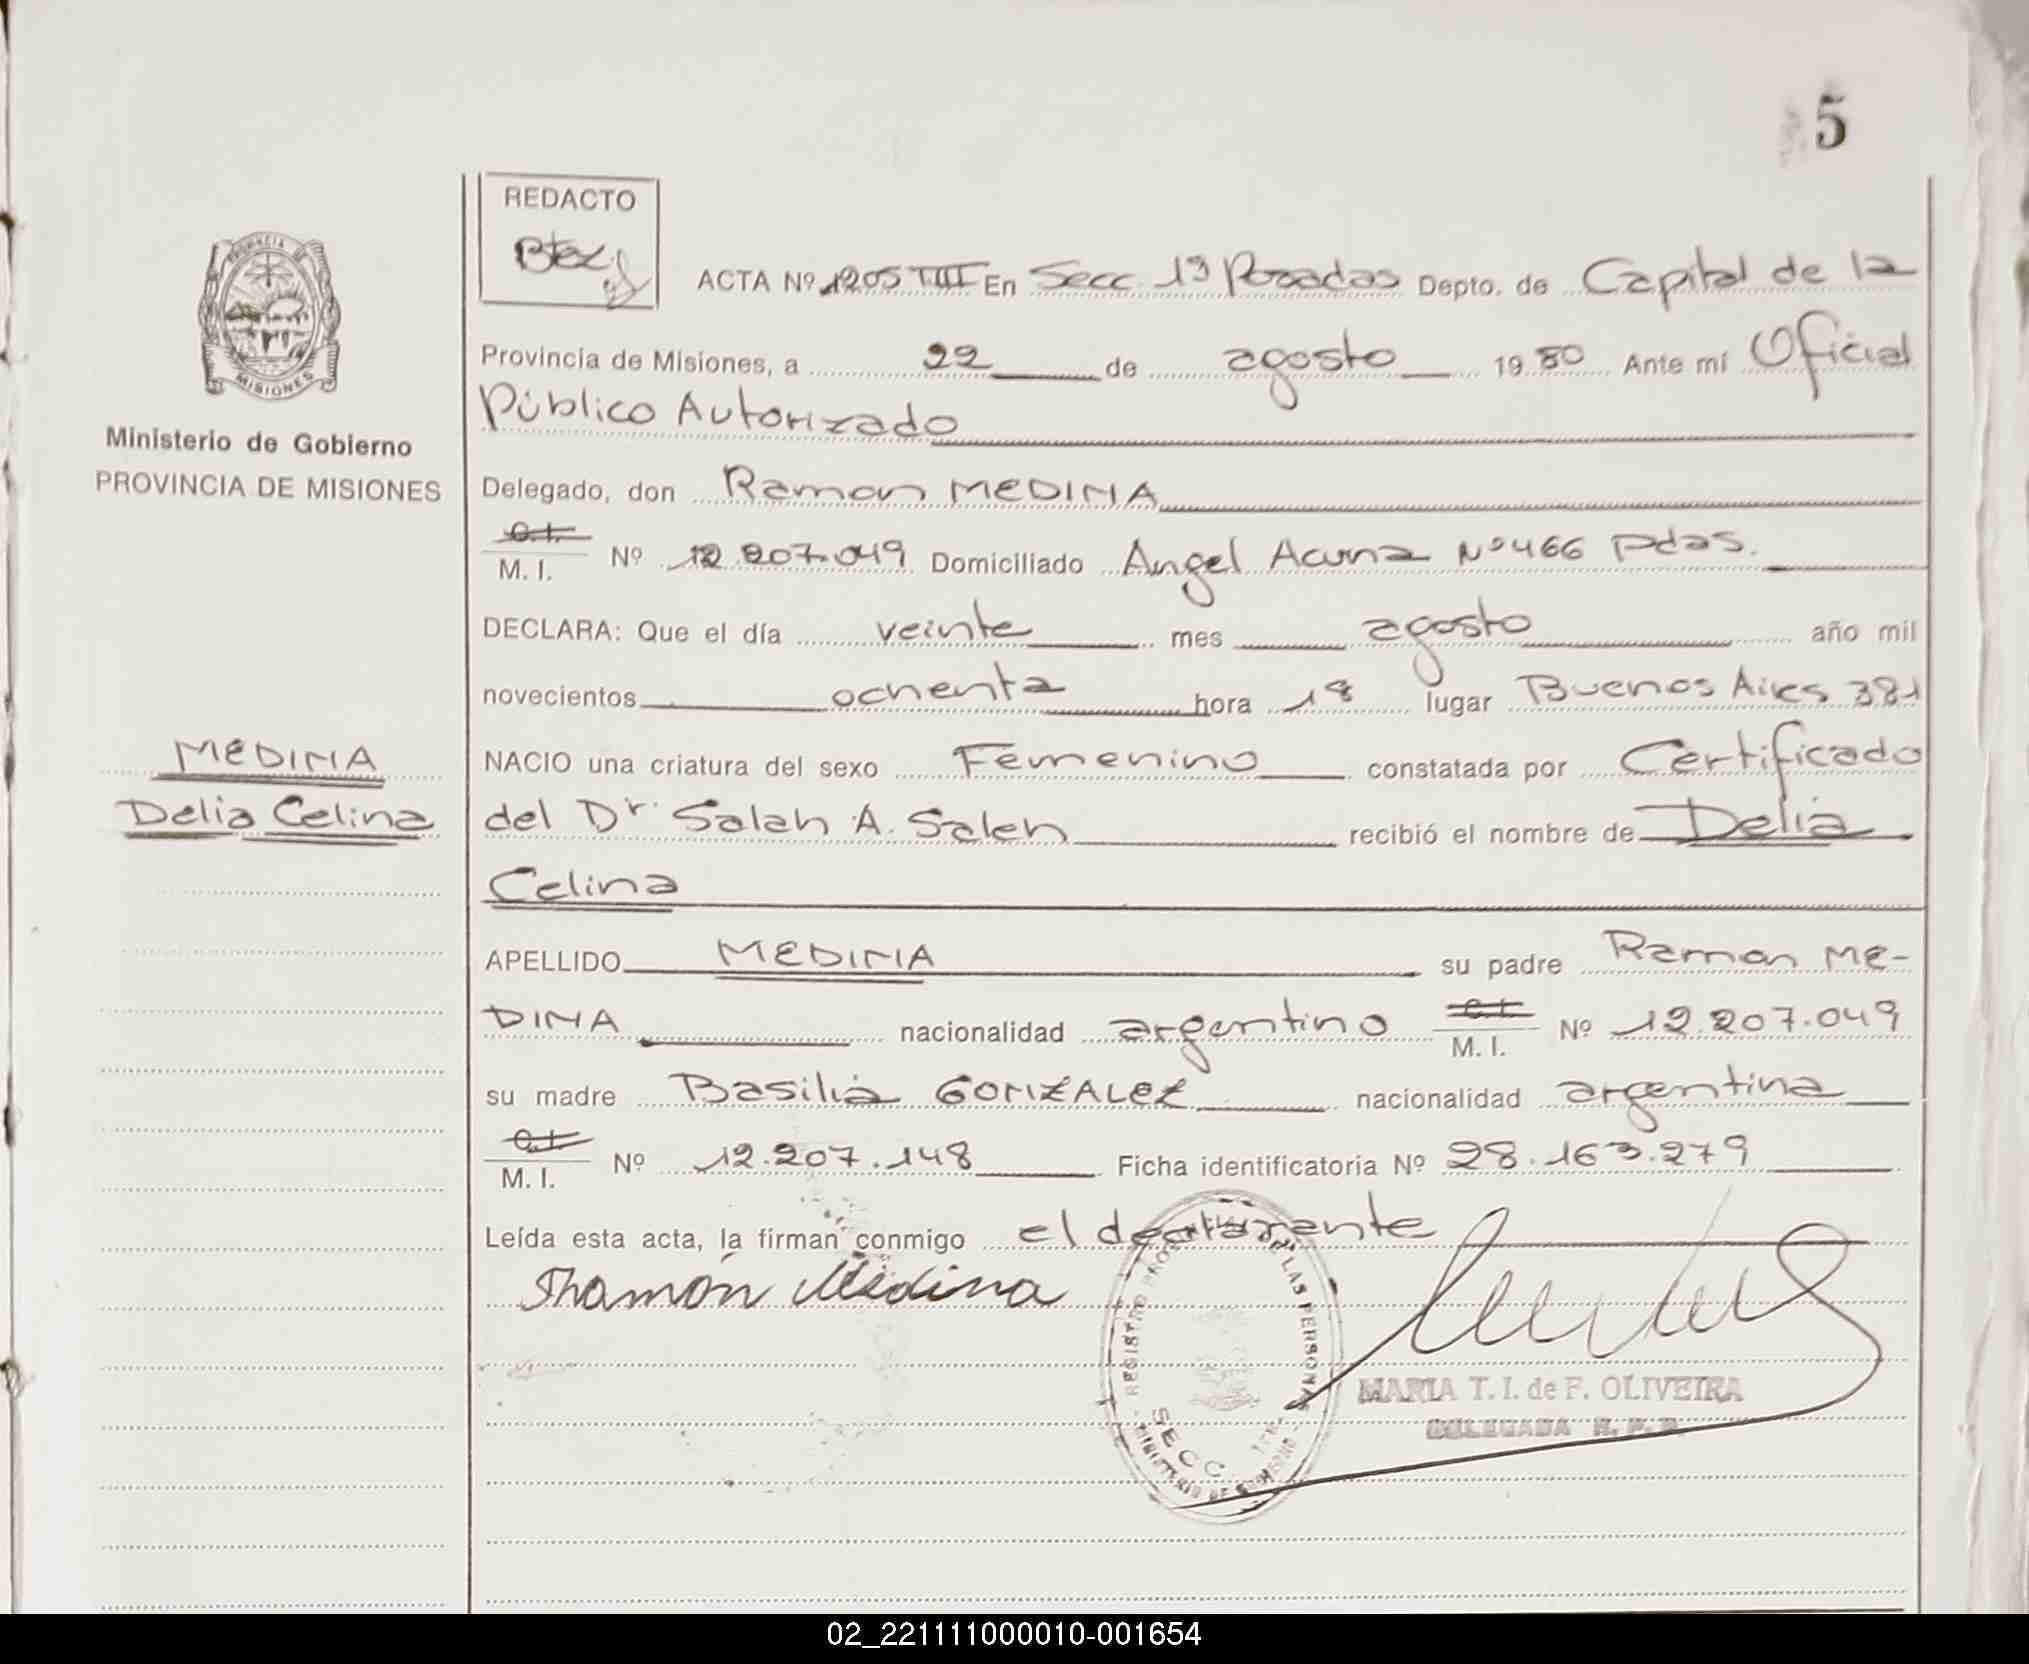 5
REDACTO
ACTA Nº 1205 TIII En Secc. 1ª Posadas Depto. de Capital de la
Provincia de Misiones, a 22 de agosto 1980 Ante mí Oficial
Público Autorizado
PROVINCIA DE
MISIONES
Ministerio de Gobierno
PROVINCIA DE MISIONES
Delegado, don Ramon MEDINA
C.I.
M. I. Nº 12.207.049 Domiciliado Angel Acuna Nº 466 Pdas.
DECLARA: Que el día veinte mes agosto año mil
novecientos ochenta hora 18 lugar Buenos Aires 381
MEDINA
Delia Celina
NACIO una criatura del sexo Femenino constatada por Certificado
del Dr. Salah A. Saleh recibió el nombre de Delia
Celina
APELLIDO MEDINA su padre Ramon ME-
DINA nacionalidad argentino C.I. M. I. Nº 12.207.049
su madre Basilia GONZALEZ nacionalidad argentina
C.I.
M. I. Nº 12.207.148 Ficha identificatoria Nº 28.163.279
Leída esta acta, la firman conmigo el declarante
Ramón Medina
REGISTRO LAS PERSONAS
SECC
MARIA T. I. de F. OLIVEIRA
DELEGADA R. P. P.
02_221111000010-001654